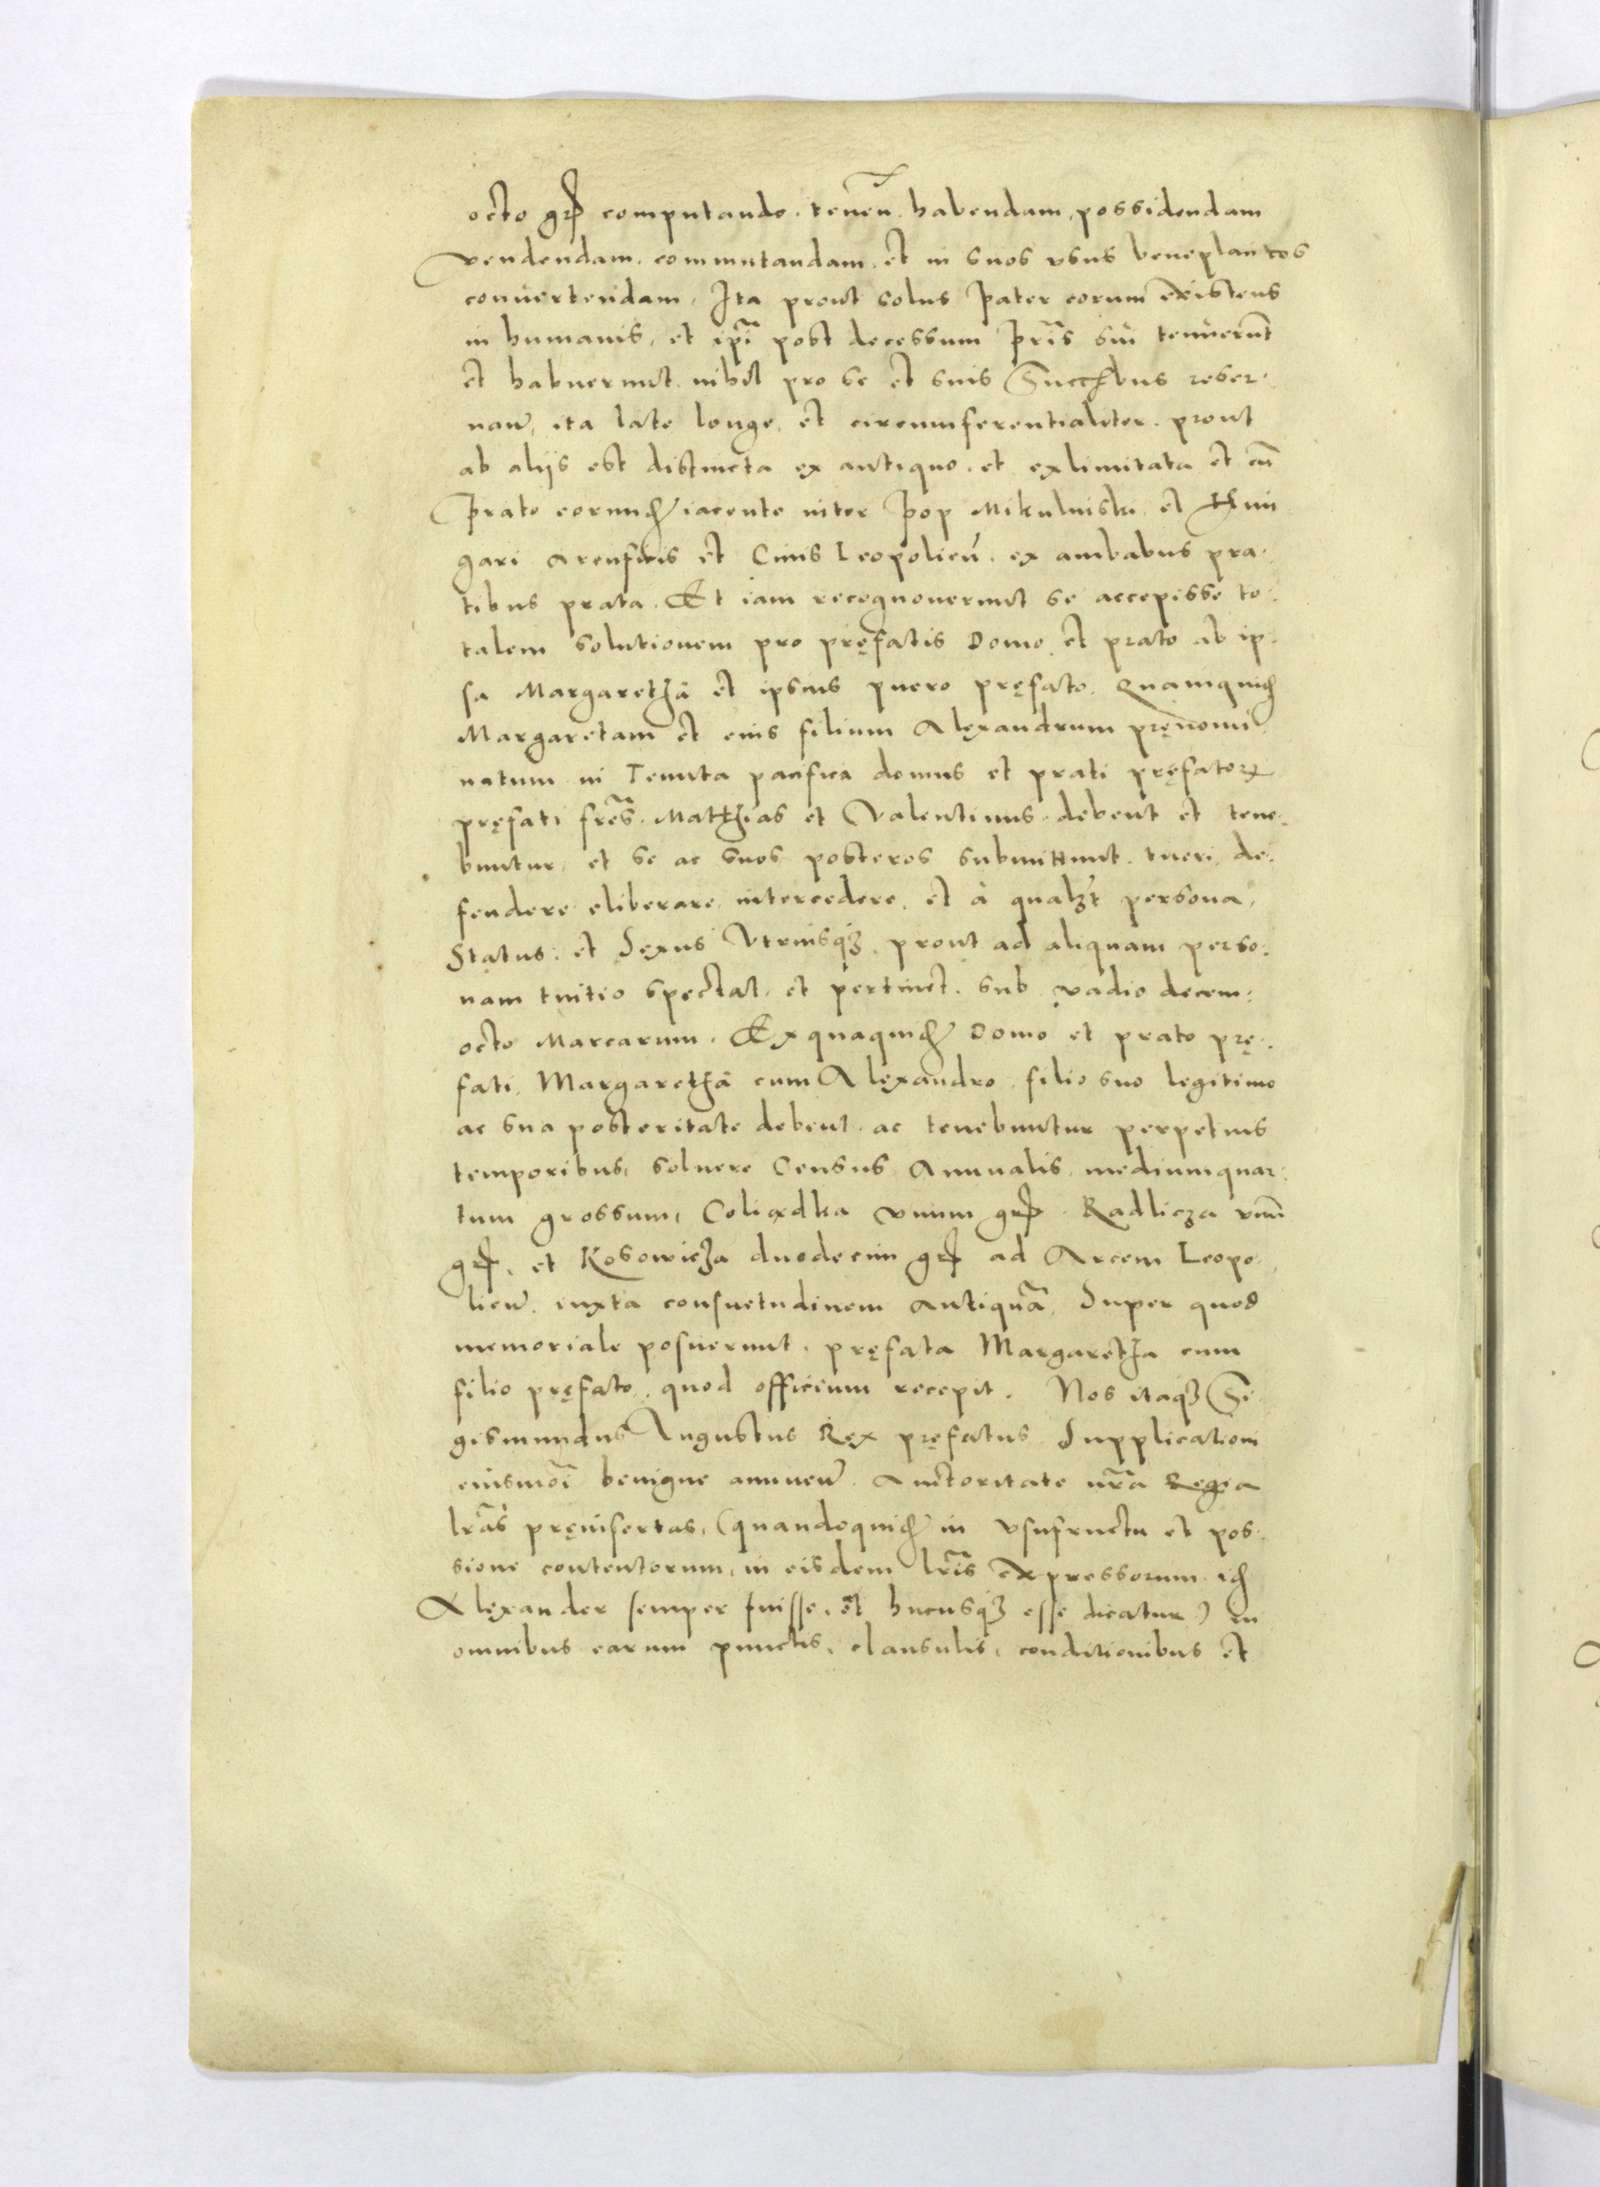 octo gr̃ computando. teneñ. habendam, possidendam
vendendam. commutandam. et in suos vsus beneplacitos
convertendam. Ita prout solus Pater eorum existens
in humanis, et ip̃i post decessum Pr̃is sui tenuerunt
et habuerunt nihil pro se et suis Succ̃bus reser-
nañ, ita late longe, et circumferentialiter. prout
ab aliis est distincta ex antiquo. et exlimitata et cũ
Prato eorundẽ iacente inter Pop Mikulniski et Hun
gari Arenficis et Ciuis Leopolieñ. ex ambabus pra-
tibus prata. Et iam recognouerunt se accepisse to-
talem solutionem pro pręfatis Domo et prato ab ip-
sa Margarethã et ipsius puero pręfato. Quamquidẽ
Margaretam et eius filium Alexandrum pręnomi-
natum in Tenuta pacifica domus et prati pręfatorꝝ
pręfati fr̃es. Matthias et Valentinus. debent et tene-
buntur, et se ac suos posteros submittunt. tueri, de-
fendere eliberare intercedere. et à qualzt persona,
Status. et Sexus Vtriusqꝫ. prout ad aliquam perso-
nam tuitio spectat, et pertinet. sub vadio decem-
octo Marcarum. Ex quaquidẽ Domo et prato prę-
fati. Margarethã cum Alexandro. filio suo legitimo
ac sua posteritate debent. ac tenebuntur perpetuis
temporibus, soluere Census Annualis. mediumquar-
tum grossum, Coliadka vnum gr̃. Radlicza vnũ
gr̃. et Kosowicza duodecim gr̃ ad Arcem Leopo-
lieñ. iuxta consuetudinem antiquã. Super quod
memoriale posuerunt. pręfata Margaretha cum
filio pręfato. quod officium recepit. Nos itaqꝫ Si-
gismundus Augustus Rex pręfatus Supplicationi
eiusmõi benigne annueñ. Auctoritate nr̃a Regia
lr̃as pręinsertas, (quandoquidẽ in vsufructu et pos-
sione contentorum, in eisdem lr̃is expressorum. idẽ
Alexander semper fuisse. et hucusqꝫ esse dicatur) in
omnibus earum punctis, clausulis, conditionibus et